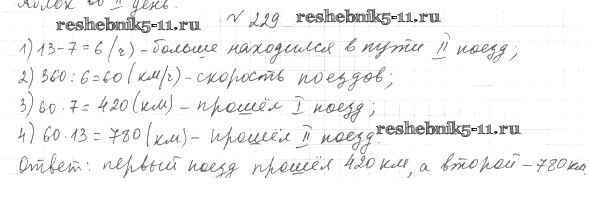 яблок во II день.
reshebnik5-11.ru. № 229 reshebnik5-11.ru
1) 13-7=6 (ч) - больше находился в пути II поезд;
2) 360:6=60 (км/ч) - скорость поездов;
3) 60·7=420 (км) - прошёл I поезд;
4) 60·13=780 (км) - прошёл II поезд. reshebnik5-11.ru
Ответ: первый поезд прошёл 420 км, а второй - 780 км.